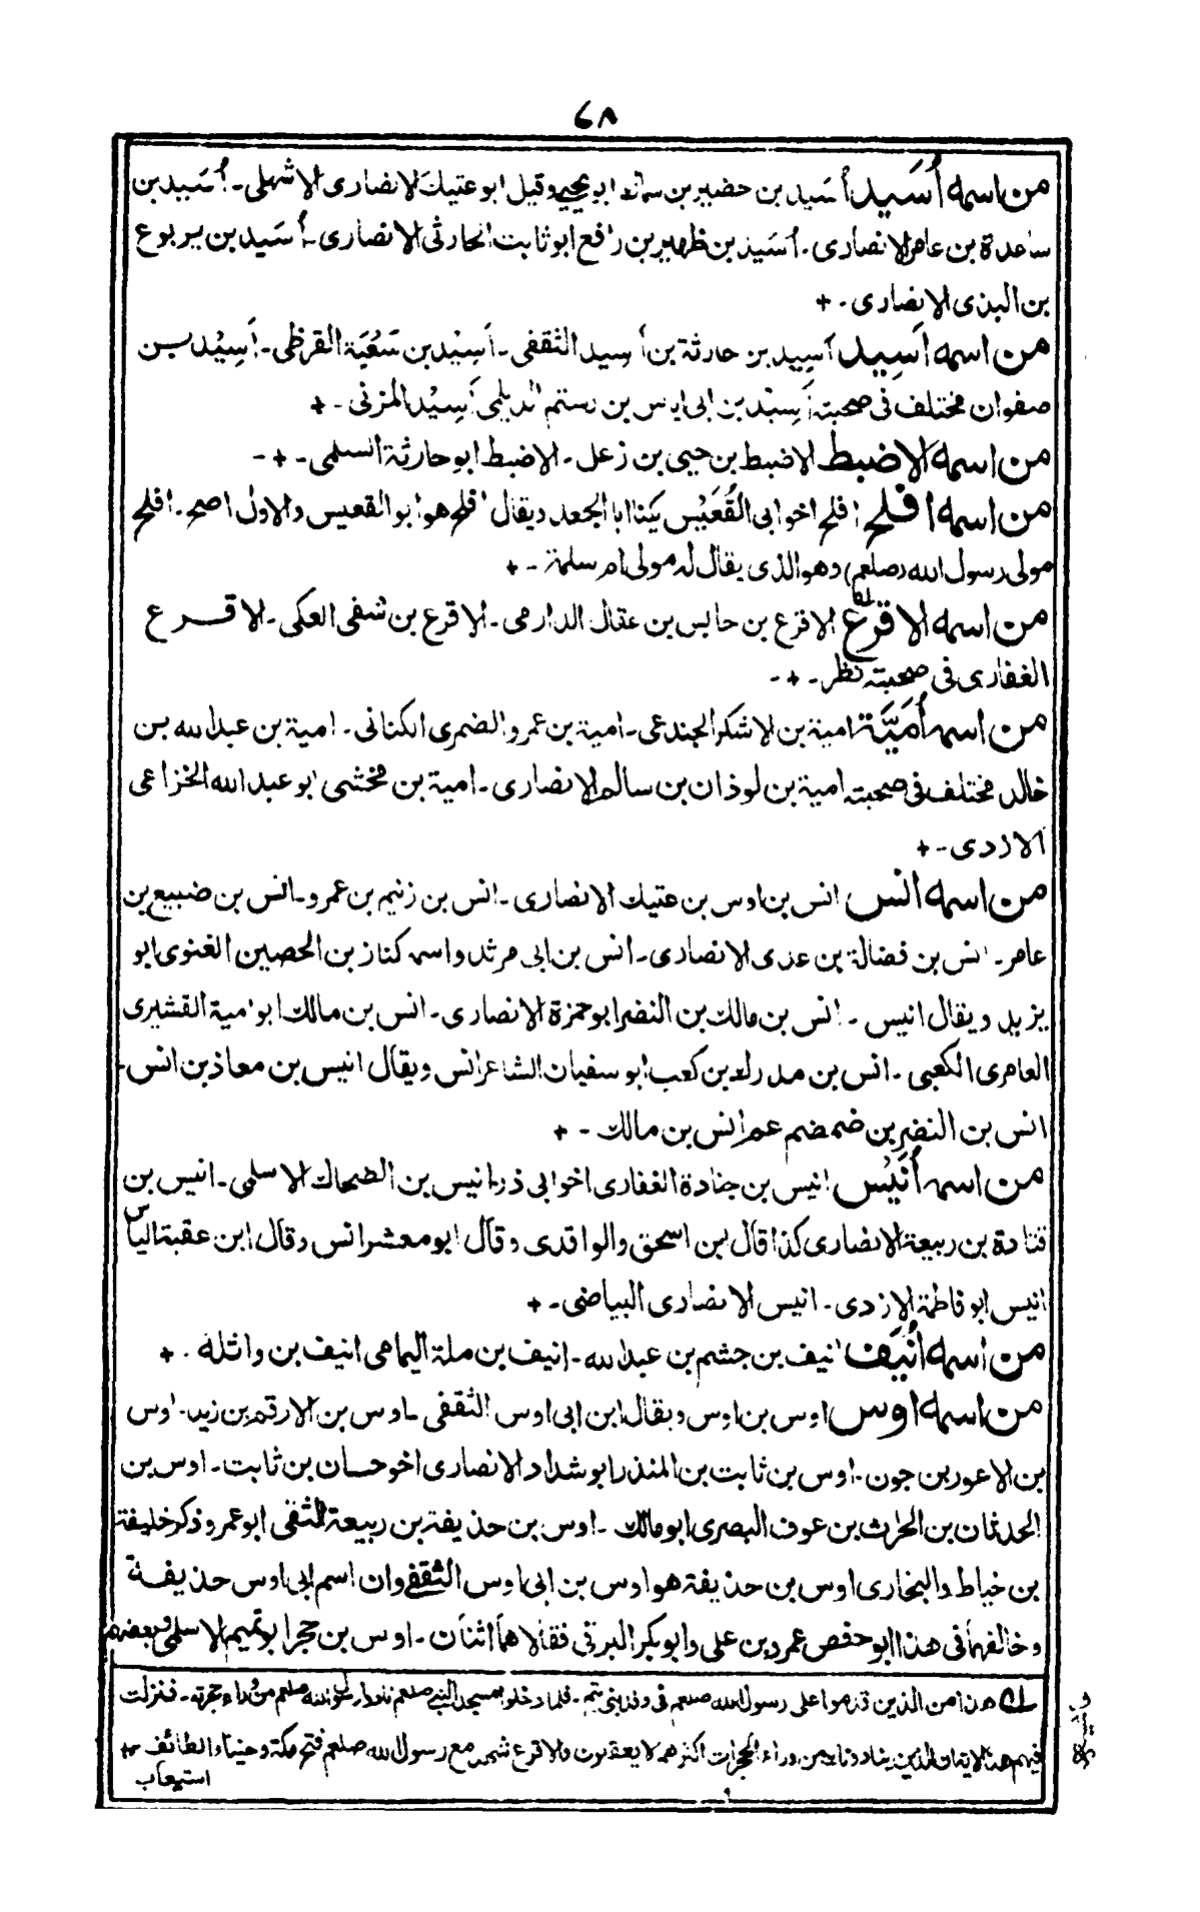 ٦٨
من اسمه أُسَيد أُسَيد بن حضير بن سماك ابو يحيى وقيل ابو عتيك الانصارى الاشهلى ـ أُسَيد بن
ساعدة بن عامر الانصارى ـ أُسَيد بن ظهير بن رافع ابو ثابت الحارثى الانصارى ـ أُسَيد بن يربوع
بن البذى الانصارى ـ +
من اسمه اَسِيد اَسِيد بن حارثة بن اَسِيد الثقفى ـ اَسِيْد بن سَعْيَة القرظى ـ اَسِيْد بن
صفوان مختلف فى صحبته اَسِيْد بن ابى اياس بن رستم الديلى اَسِيْد المزنى ـ +
من اسمه الاضبط الاضبط بن حيى بن زعل ـ الاضبط ابو حارثة السلمى ـ + ـ
من اسمه افلح افلح اخو ابى القُعَيْس يكنا ابا الجعد ويقال افلح هو ابو القعيس والاول اصح ـ افلح
مولى رسول الله (صلعم) وهو الذى يقال له مولى ام سلمة ـ +
من اسمه الاقرع الاقرع بن حابس بن عقال الدارمى ـ الاقرع بن شفى العكى ـ الاقرع
الغفارى فى صحبته نظر ـ + ـ
من اسمه أُمَيَّة امية بن لاشكر الجندعى ـ امية بن عمرو الضمرى الكنانى ـ امية بن عبد الله بن
خالد مختلف فى صحبته امية بن لوذان بن سالم الانصارى ـ امية بن مخشى ابو عبد الله الخزاعى
الازدى ـ +
من اسمه انس انس بن اوس بن عتيك الانصارى ـ انس بن زنيم بن عمرو ـ انس بن ضبيع بن
عامر ـ انس بن فضالة بن عدى الانصارى ـ انس بن ابى مرثد واسمه كناز بن الحصين الغنوى ابو
يزيد ويقال انيس ـ انس بن مالك بن النضر ابو حمزة الانصارى ـ انس بن مالك ابو امية القشيرى
العامرى الكعبى ـ انس بن مدرك بن كعب ابو سفيان الشاعر انس ويقال انيس بن معاذ بن انس ـ
انس بن النضر بن ضمضم عم انس بن مالك ـ +
من اسمه أُنَيْس انيس بن جنادة الغفارى اخو ابى ذر انيس بن الضحاك الاسلمى ـ انيس بن
قتادة بن ربيعة الانصارى كذا قال بن اسحق والواقدى وقال ابو معشر انس وقال ابن عقبة الياس
انيس ابو فاطمة الازدى ـ انيس الانصارى البياضى ـ +
من اسمه أُنَيف انيف بن جشم بن عبد الله ـ انيف بن ملة اليمامى انيف بن واثلة ـ +
من اسمه اوس اوس بن اوس ويقال ابن ابى اوس الثقفى ـ اوس بن الارقم بن زيد ـ اوس
بن الاعور بن جون ـ اوس بن ثابت بن المنذر ابو شداد الانصارى اخو حسان بن ثابت ـ اوس بن
الحدثان بن الحرث بن عوف البصرى ابو مالك ـ اوس بن حذيفة بن ربيعة الثقفى ابو عمرو ذكر خليفة
بن خياط والبخارى اوس بن حذيفة هو اوس بن ابى اوس الثقفى وان اسم ابى اوس حذيفة
وخالفهما فى هذا ابو حفص عمرو بن على وابو بكر البرقى فقالا هما اثنان ـ اوس بن حجر ابو تميم الاسلمى وبعضهم
حاشية
له هذا من الذين قدموا على رسول الله صلعم فى وفد بنى تميم ـ فلما دخلوا بمسجد النبى صلعم نادوا رسول الله صلعم من وراء حجرته ـ فنزلت
فيهم هذه الاية ان الذين ينادونك من وراء الحجرات اكثرهم لا يعقلون والاقرع شهد مع رسول الله صلعم فتح مكة وحنينا والطائف +
استيعاب